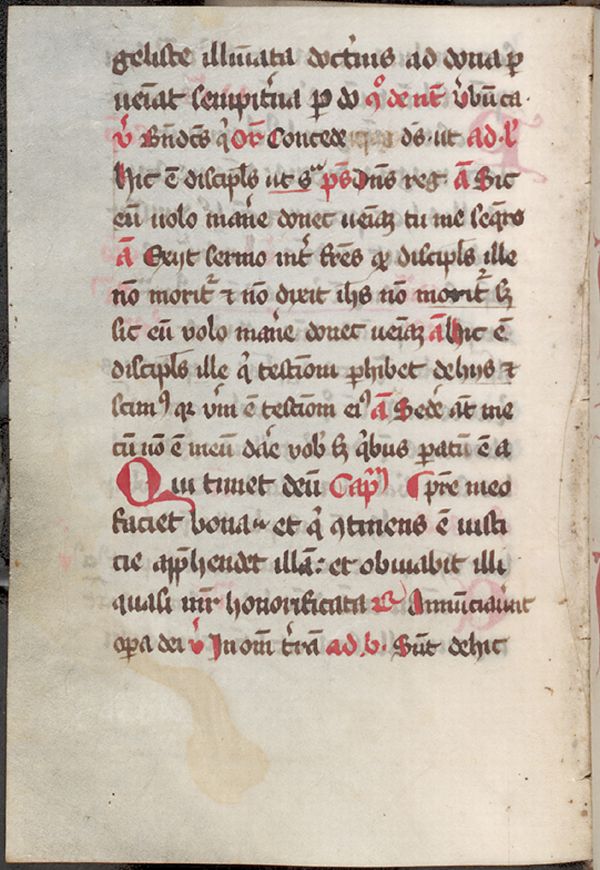 geliste illu̅i̅ata doct'inis ad dona p
ueniat sempit'na p do qͦ de nt̅ v̓bu̅ ca.
v̓ Bn̅dc̅s q̓ or̅ Concede ds̅ · ut ad · l'
hic e̅ discipl̅s ut sᵃ ps̅ Dn̅s reg̅ a̅ Sic
eu̅ uolo man̓e donec uenia̅ tu me seq̓re
a̅ Exijt sermo int̓ fr̅es qꝫ discipl̅s ille
no̅ morit᷑ ⁊ no̅ dixit ih̅s no̅ morit᷑ sꝫ
sic eu̅ volo man̓e donec ueniaꝫ a̅ hic e̅
discipl̅s ille q̓ testi̅oiu̅ ꝑhibet de hijs ⁊
scimꝰ qꝛ vm̅ e̅ testi̅om̅ eiꝰ a̅ Sed̓e at̅ me
cu̅ no̅ e̅ meu̅ da̓e vob̓ sꝫ q̓bus paratu̅ e̅ a
Qui timet deu̅ Cap̅m p̅re meo
faciet bona .. et q̓ ꝯtinens e̅ iusti
cie app̅hendet illa̅ : et obuiabit illi
quasi mr̅ honorificata ꝶ Annu̅ciau̅it
opa dei v̓ In om̅ t̓ra̅ ad . b . Su̅t de hic